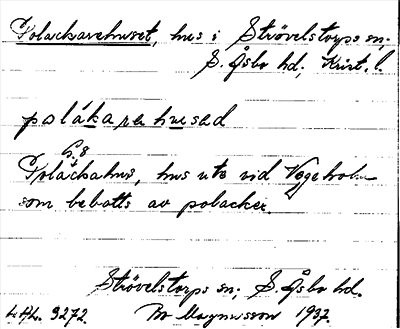 Polackarehuset, hus i Strövelstorps sn;
S. Åsbo hd, Krist. l.
polákarehused
Polackahus, hus ute vid Vegeholm
som bebotts av polacker.
Strövelstorps sn; S. Åsbo hd.
L.A.L. 3272. Magnusson 1937.